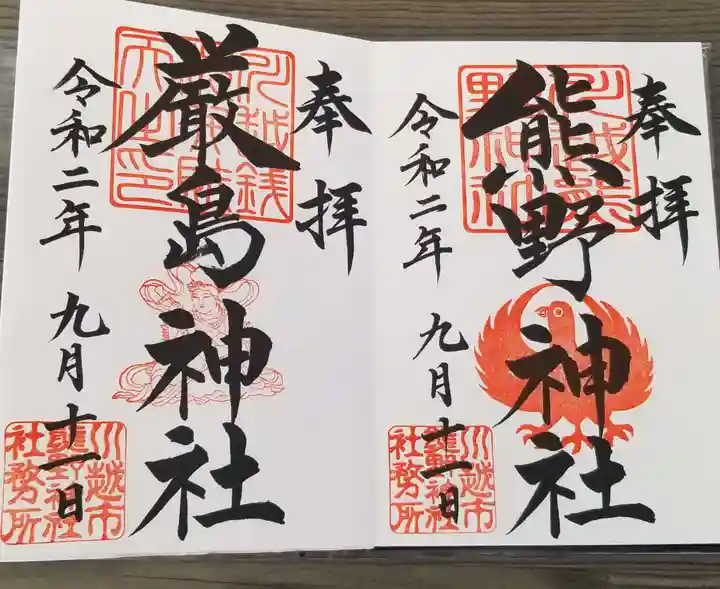 奉拝
熊野神社
令和二年 九月十一日
川越市
熊野神社
社務所
奉拝
厳島神社
令和二年 九月十一日
川越市
熊野神社
社務所